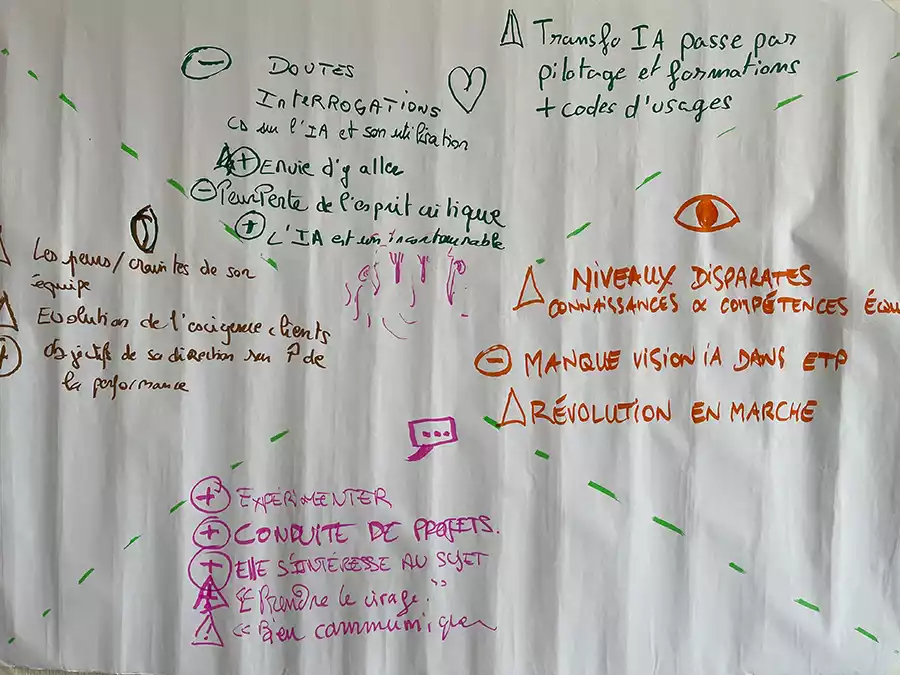 DOUTES
INTERROGATIONS
sur l'IA et son utilisation
Envie d'y aller
Peur Perte de l'esprit critique
L'IA est un incontournable
Transfo IA passe par
pilotage et formations
+ codes d'usages
Les peurs/craintes de son
équipe
Evolution de l'exigence clients
objectifs de sa direction sur de
la performance
NIVEAUX DISPARATES
CONNAISSANCES & COMPÉTENCES ÉQU
MANQUE VISION IA DANS ETP
RÉVOLUTION EN MARCHE
EXPÉRIMENTER
CONDUITE DE PROJETS.
ELLE S'INTÉRESSE AU SUJET
"Prendre le virage."
"Bien communiquer